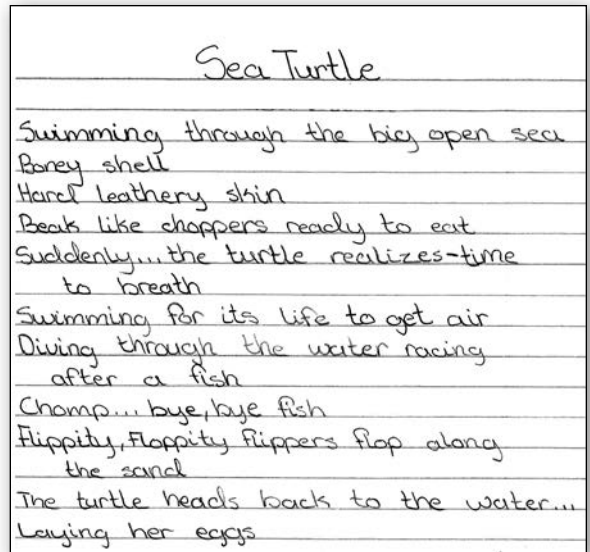 Sea Turtle
Swimming through the big open sea
Boney shell
Hard leathery skin
Beak like choppers ready to eat
Suddenly...the turtle realizes-time
to breath
Swimming for its life to get air
Diving through the water racing
after a fish
Chomp... bye, bye fish
Flippity, Floppity flippers flop along
the sand
The turtle heads back to the water...
Laying her eggs